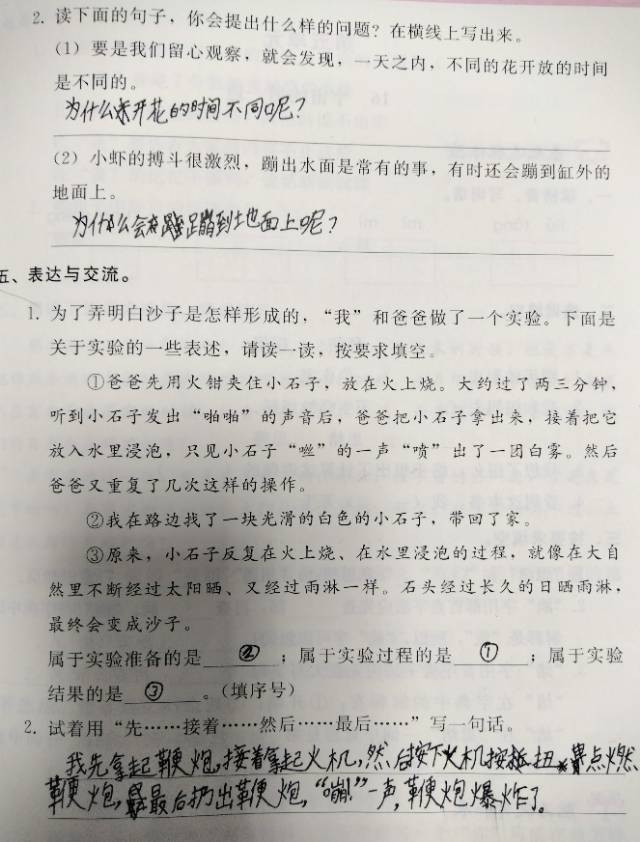 2. 读下面的句子，你会提出什么样的问题？在横线上写出来。
(1) 要是我们留心观察，就会发现，一天之内，不同的花开放的时间
是不同的。
为什么开花的时间不同呢？
(2) 小虾的搏斗很激烈，蹦出水面是常有的事，有时还会蹦到缸外的
地面上。
为什么会蹦到地面上呢？
五、表达与交流。
1. 为了弄明白沙子是怎样形成的，“我”和爸爸做了一个实验。下面是
关于实验的一些表述，请读一读，按要求填空。
①爸爸先用火钳夹住小石子，放在火上烧。大约过了两三分钟，
听到小石子发出“啪啪”的声音后，爸爸把小石子拿出来，接着把它
放入水里浸泡，只见小石子“咝”的一声“喷”出了一团白雾。然后
爸爸又重复了几次这样的操作。
②我在路边找了一块光滑的白色的小石子，带回了家。
③原来，小石子反复在火上烧、在水里浸泡的过程，就像在大自
然里不断经过太阳晒、又经过雨淋一样。石头经过长久的日晒雨淋，
最终会变成沙子。
属于实验准备的是 ② ；属于实验过程的是 ① ；属于实验
结果的是 ③ 。（填序号）
2. 试着用“先……接着……然后……最后……”写一句话。
我先拿起鞭炮，接着拿起火机，然后按下火机按扭，点燃
鞭炮，最后扔出鞭炮，“嘣！”一声，鞭炮爆炸了。